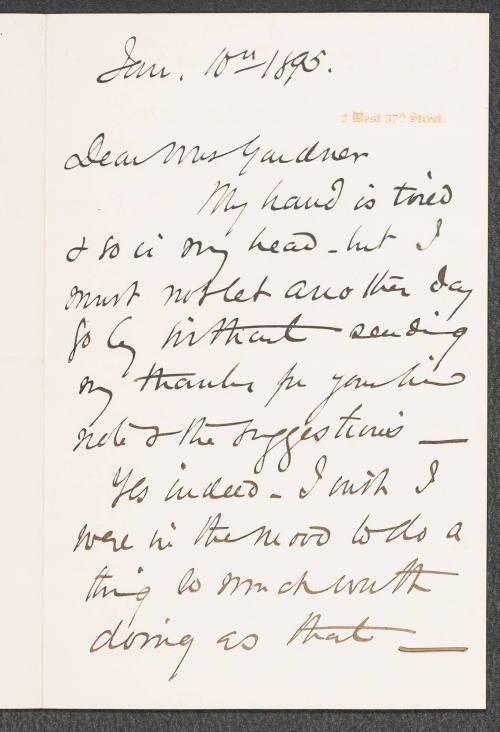 Jan. 10th 1895.
2 West 37th Street.
Dear Mrs Gardner
My hand is tired
& so is my head - but I
must not let another day
go by without sending
my thanks for your kind
note & the suggestions —
Yes indeed - I wish I
were in the mood to do a
thing so much worth
doing as that —